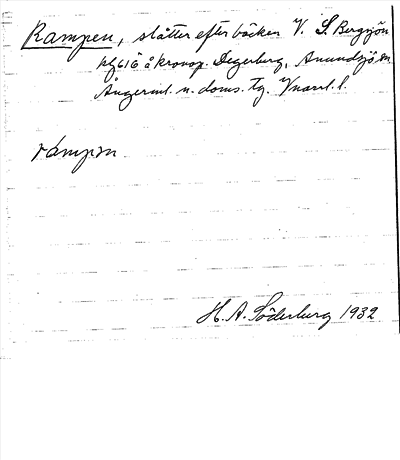 Rampen, slåtter efter bäcken V. S. Bergsjön
på å kronop. Degerberg, Anundsjö sn.
Ångerml. n. doms. tg. Vnorrl. l.
rámpm
H. A. Söderberg 1932